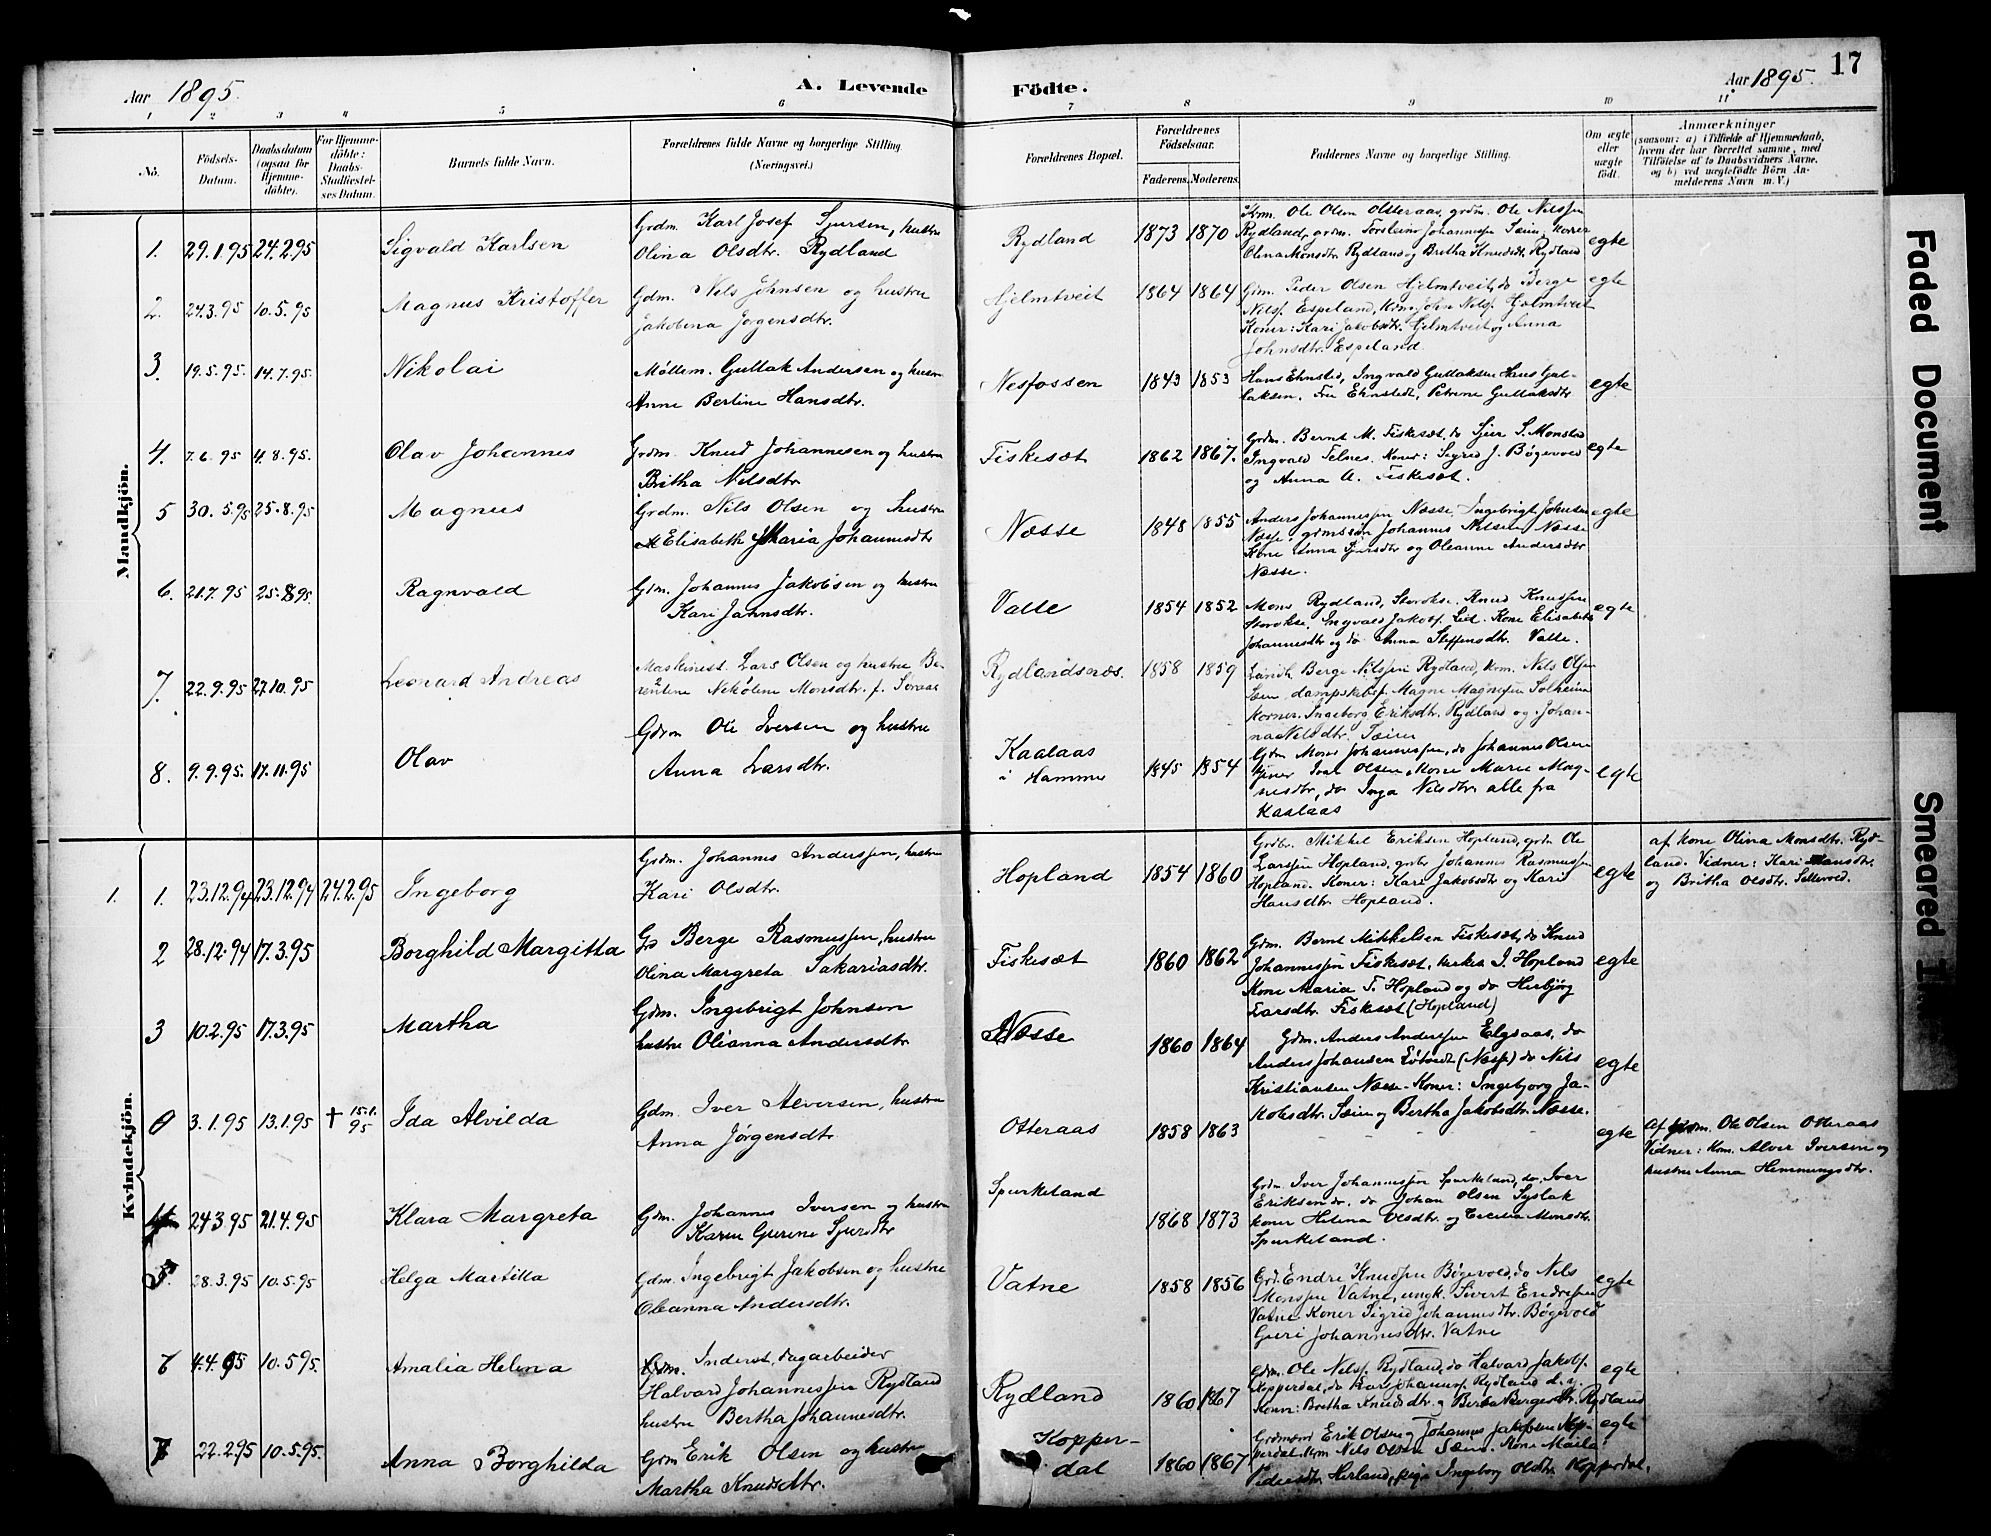 17
Aar 1895.
A. Levende
Födte.
Aar 1895.
1 2 3 4 5 6 7 8 9 10 11
No.
Födsels-
Datum.
Daabsdatum
(ogsaa for
Hjemme-
döbte).
For Hjemme-
döbte:
Daabs-
Stadfæstel-
ses Datum.
Barnets fulde Navn.
Forældrenes fulde Navne og borgerlige Stilling.
(Næringsvei.)
Forældrenes Bopæl.
Forældrenes
Fødselsaar.
Faderens.
Moderens.
Faddernes Navne og borgerlige Stilling.
Om ægte
eller
uægte
født.
Anmærkninger
(saasom: a) i Tilfælde af Hjemmedaab,
hvem der har forrettet samme, med
Tilföielse af to Daabsvidners Navne,
og b) ved uægtefödte Börn An-
melderens Navn m. V.)
Mandkjön.
1. 29.1.95 24.2.95
Sigvald Karlsen
Grdm. Karl Josef Sjursen, hustru
Olina Olsdtr. Rydland
Rydland
1873 1870
Krm. Ole Olsen Otteraas, grdm. Ole Nilssen
Rydland, grdm. Torstein Johannessen Sæim, Koner
Olina Monsdtr Rydland og Britha Knudsdtr Rydland
egte
2. 24.3.95 10.5.95
Magnus Kristoffer
Gdm. Nils Johnsen og hustru
Jakobina Jørgensdtr.
Hjelmtveit
1864 1864
Gdm. Peder Olsen Hjelmtveit, do Berge
Nilss. Espeland, John Nilss. Hjelmtveit
Koner: Kari Jakobsdtr. Hjelmtveit og Anna
Johnsdtr. Espeland.
egte
3. 19.5.95. 14.7.95.
Nikolai
Møllem. Gullak Andersen og hustru
Anne Bertine Hansdtr.
Nesfossen
1843 1853
Hans Ehnsted, Ingvald Gullaksen Hans Gul-
laksen, Fru Ehnstedt, Petrine Gullaksdtr
egte
4. 7.6.95 4.8.95.
Olav Johannes
Grdm. Knud Johannesen og hustru
Britha Nilsdtr
Fiskesæt
1862 1867.
Grdm. Bernt M. Fiskesæt, do Sjur S. Monstad
Ingvald Felnes, Koner: Sigrid J. Bøgevold
og Anna A. Fiskesæt.
egte
5 30.5.95 25.8.95
Magnus
Grdm. Nils Olsen og hustru
Elisabeth Maria Johannesdtr
Næsse
1848 1855
Anders Johannessen Næsse, Ingebrigt Johnsen
Næsse, grdmssøn Johannes Nilsen Næsse
Kone Anna Sjursdtr og Oleanne Andersdtr
Næsse.
egte
6. 21.7.95 25.8.95.
Ragnvald
Gdm. Johannes Jakobsen og hustru
Kari Jahnsdtr.
Valle
1854 1852
Mons Rydland, Storokse. Knud Knussen
Storokse, Ingvald Jakobs. Eid. Kone Elisabeth
Johannesdtr og do Anna Steffensdtr. Valle.
egte
7. 22.9.95 27.10.95
Leonard Andreas
Maskinist. Lars Olsen og hustru Be-
rentine Nikoline Monsdtr. f. Soraas
Rydlandsnæs.
1858 1859
Landh. Berge Nilssen Rydland, krm. Nils Olsen
Sæim, dampskibsf. Magne Magnessen Solheim
Koner. Ingeborg Eriksdtr. Rydland og Johan-
na Nilsdtr. Sæim
8. 9.9.95. 17.11.95
Olav
Gdrm Ole Iversen og hustru
Anna Larsdtr.
Kaalaas
i Hammer
1845 1854
Gdm Mons Johannessen, do Johannes Olsen
Ivar Olsen, Kone Marie Mag-
nesdtr, do Inga Nilsdtr. alle fra
Kaalaas
egte
Kvindekjön.
1. 1. 23.12.94 23.12.94 24.2.95
Ingeborg
Grdm. Johannes Anderssen, hustru
Kari Olsdtr.
Hopland
1854 1860
Grdbr. Mikkel Eriksen Hopland, grdr. Ole
Larssen Hopland, gnbr Johannes Rasmussen
Hopland. Koner: Kari Jakobsdtr og Kari
Hansdtr. Hopland.
egte
af Kone Olina Monsdtr. Ryd-
land. Vidner: Kari Hansdtr.
og Britha Olsdtr. Sellevold.
2 28.12.94 17.3.95
Borghild Margitta
Gd Berge Rasmussen, hustru
Olina Margreta Sakariasdtr.
Fiskesæt
1860 1862
Gdm. Bernt Mikkelsen Fiskesæt, do Knud
Johannessen Fiskesæt, I. Hopland
Kone Maria T. Hopland og do Herbjørg
Larsdtr. Fiskesæt (Hopland)
egte
3 10.2.95 17.3.95
Martha
Gdm. Ingebrigt Johnsen
hustru Olianna Andersdtr
Næsse
1860 1864
Gdm. Anders Anderssen Elgsaas, do
Anders Johansen Løtvedt (Næss) do Nils
Kristiansen Næsse. Koner: Ingebjorg Ja-
kobsdtr. Sæim og Bertha Jakobsdtr. Næsse.
egte
0 3.1.95 13.1.95 † 15.1.
95
Ida Alvilda
Gdm. Iver Alversen, hustru
Anna Jørgensdtr
Otteraas
1858 1863
egte
Af grdm. Ole Olsen Otteraas
Vidner: Krm. Alver Iversen og
hustru Anna Hemmingsdtr.
4 24.3.95 21.4.95
Klara Margreta
Gdm. Johannes Iversen og hustru
Karen Gurine Sjursdtr
Spurkeland
1868 1873
Grdm. Iver Johannessen Spurkeland, do. Iver
Eriksen do. do Johan Olsen Syslak
koner Helena Olsdtr. og Cecilia Monsdtr.
Spurkeland.
5. 28.3.95 10.5.95
Helga Martitta
Gdm. Ingebrigt Jakobsen og hustru
Oleanna Andersdtr.
Vatne
1858 1856
Grd. Endre Knudsen Bøgevold, do Nils
Monssen Vatne, ungk. Sivert Endressen
Vatne Koner Sigrid Johannesdtr. Bøgevold
Guri Johannesdtr. Vatne
egte
6 4.4.95 10.5.95.
Amalia Helena
Gdm. Inderst, dagarbeider
Halvard Johannessen Rydland
hustru Bertha Johannesdtr.
Rydland
1860 1867
Gdm. Ole Nilss. Rydland, do Halvard Jakobs.
Kopperdal, do Lars Johanness. Rydland d.y.
Koner: Britha Knudsdtr. og Berta Bergesdtr. Rydland
egte
7 22.2.95 10.5.95.
Anna Borghilda
Gdm Erik Olsen og hustru
Martha Knudsdtr.
Kopper-
dal
1860 1867
Grdmænd Erik Olsen og Johannes Jakobsen Kop-
perdal, Krm Nils Olsen Sæim. Kone Maila
Pedersdtr Herland, pige Ingeborg Olsdtr Kopperdal.
egte
Faded Document
Smeared